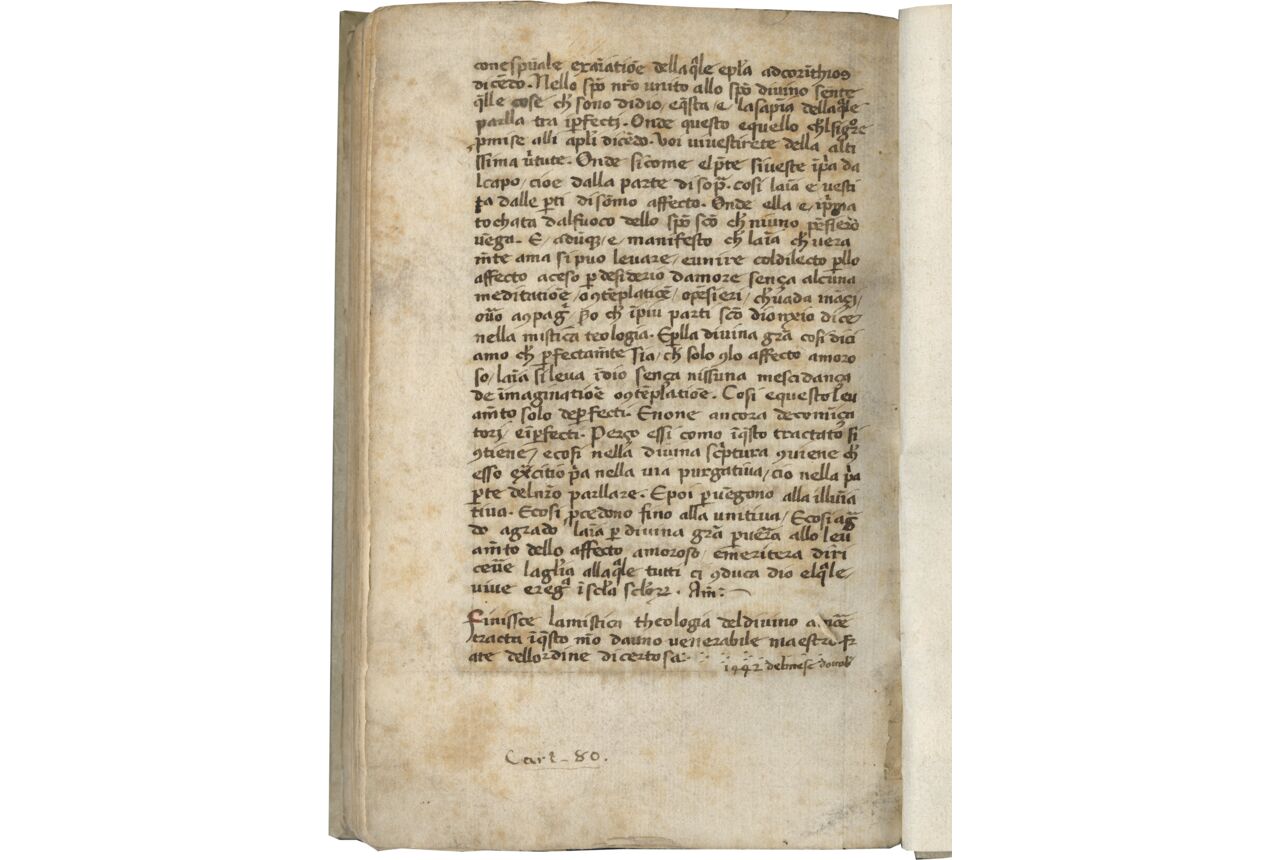 cone spūale exaīatiōe della q̄le epl̄a adcorīthios
dicēdo. Nello spō nr̄o unito allo spō divino sente
q̄lle cose ch̄ sono didio, eq̄sta, e, lasapīa della q̄le
parlla tra iperfecti. Onde questo equello chl̄sigōre
pmise alli apl̄i dicēdo. Voi vivestirete della alti
ssima v̄tute. Onde sicome elp̄te siveste īp̄a da
lcapo, cioe dalla parte disop̄. cosi laīa e vesti
ta dalle p̄ti disōmo affecto. Onde ella e, ip̄ma
tochata dalfuoco dello spō scō ch̄ niuno pēsierō
vēga. E, adūq̄, e, manifesto ch̄ laīa ch̄ vera
m̄te ama sipuo levare, eunire coldilecto p̄llo
affecto aceso p̄ desiderio damore sença alcūna
meditatiōe, o ꝯtēplatiōe, opēsieri, ch̄ vada īnāçi,
nella misticā teologia. Ep̄lla divina grā cosi dici
amo ch̄ p̄fectam̄te sia, ch̄ solo ꝯlo affecto amoro
so, laīa si leva īdio sença nissuna mescidança
de īmaginatiōe oꝯtēplatiōe. Cosi equesto lev
am̄to solo dep̄fecti. Enone ancora decomīça
tori, eīp̄fecti. Perço essi como īq̄sto tractato si
ꝯtiene, ecosi nella divina scp̄tura ꝯuiene ch̄
esso ex̄citio p̄a nella via purgativa, cio nella p̄a
p̄te delnr̄o parllare. Epoi p̄vēgono alla illuīa
tiva. Ecosi p̄cedono fino alla unitiva, Ecosi aḡ
do agrado laīa p̄ divina grā p̄verā allo lev
am̄to dello affecto amoroso, emeritera diri
cev̄e lagl̄ia alla q̄le tutti ci ꝯduca dio elq̄le,
vive ereḡ īsel̄a sel̄orꝝ. Am̄:
Finissce lamistica theologia deldivino amōe
tracta īq̄sto mō dauno venerabile maestro fr
ate dellordine dicertosa:
1442 delmese dotob̄
Cart. 80.